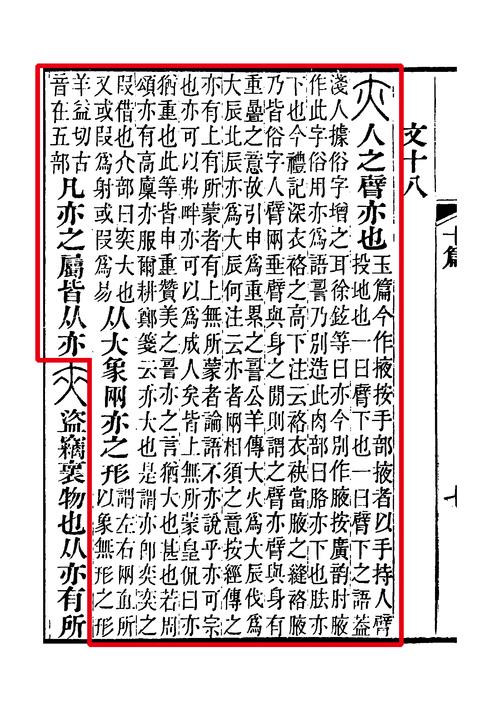 文十八
十篇
七
亦
人之臂亦也
玉篇今作掖按手部掖者以手持人臂
投地也一曰臂下也一曰臂下之語葢
淺人據俗字增之耳徐鉉等曰亦今別作腋按廣韵肘腋
作此字俗用亦爲語䛐乃別造此肉部曰胳亦下也胠亦
下也今禮記深衣袼之高下注云袼衣袂當腋之縫袼腋
乃皆俗字人臂兩垂臂與身之閒則謂之臂亦臂與身有
重疊之意故引申爲重絫之䛐公羊傳大火爲大辰伐爲
大辰北辰亦爲大辰何注云亦者兩相須之意按經傳之
亦有上有所蒙者有上無所蒙者論語不亦說乎亦可宗
也亦可以弗畔亦可以爲成人矣皆上無所蒙皇侃曰亦
猶重也此等皆申重贊美之䛐亦之言猶大也甚也若周
頌亦有高廩亦服爾耕鄭箋云亦大也是謂亦卽奕奕之
叚借也介部曰奕大也
又或叚爲射或叚爲易
从大象兩亦之形
謂左右兩所
以象無形之形
羊益切古
音在五部
凡亦之屬皆从亦
盜竊褱物也从亦有所